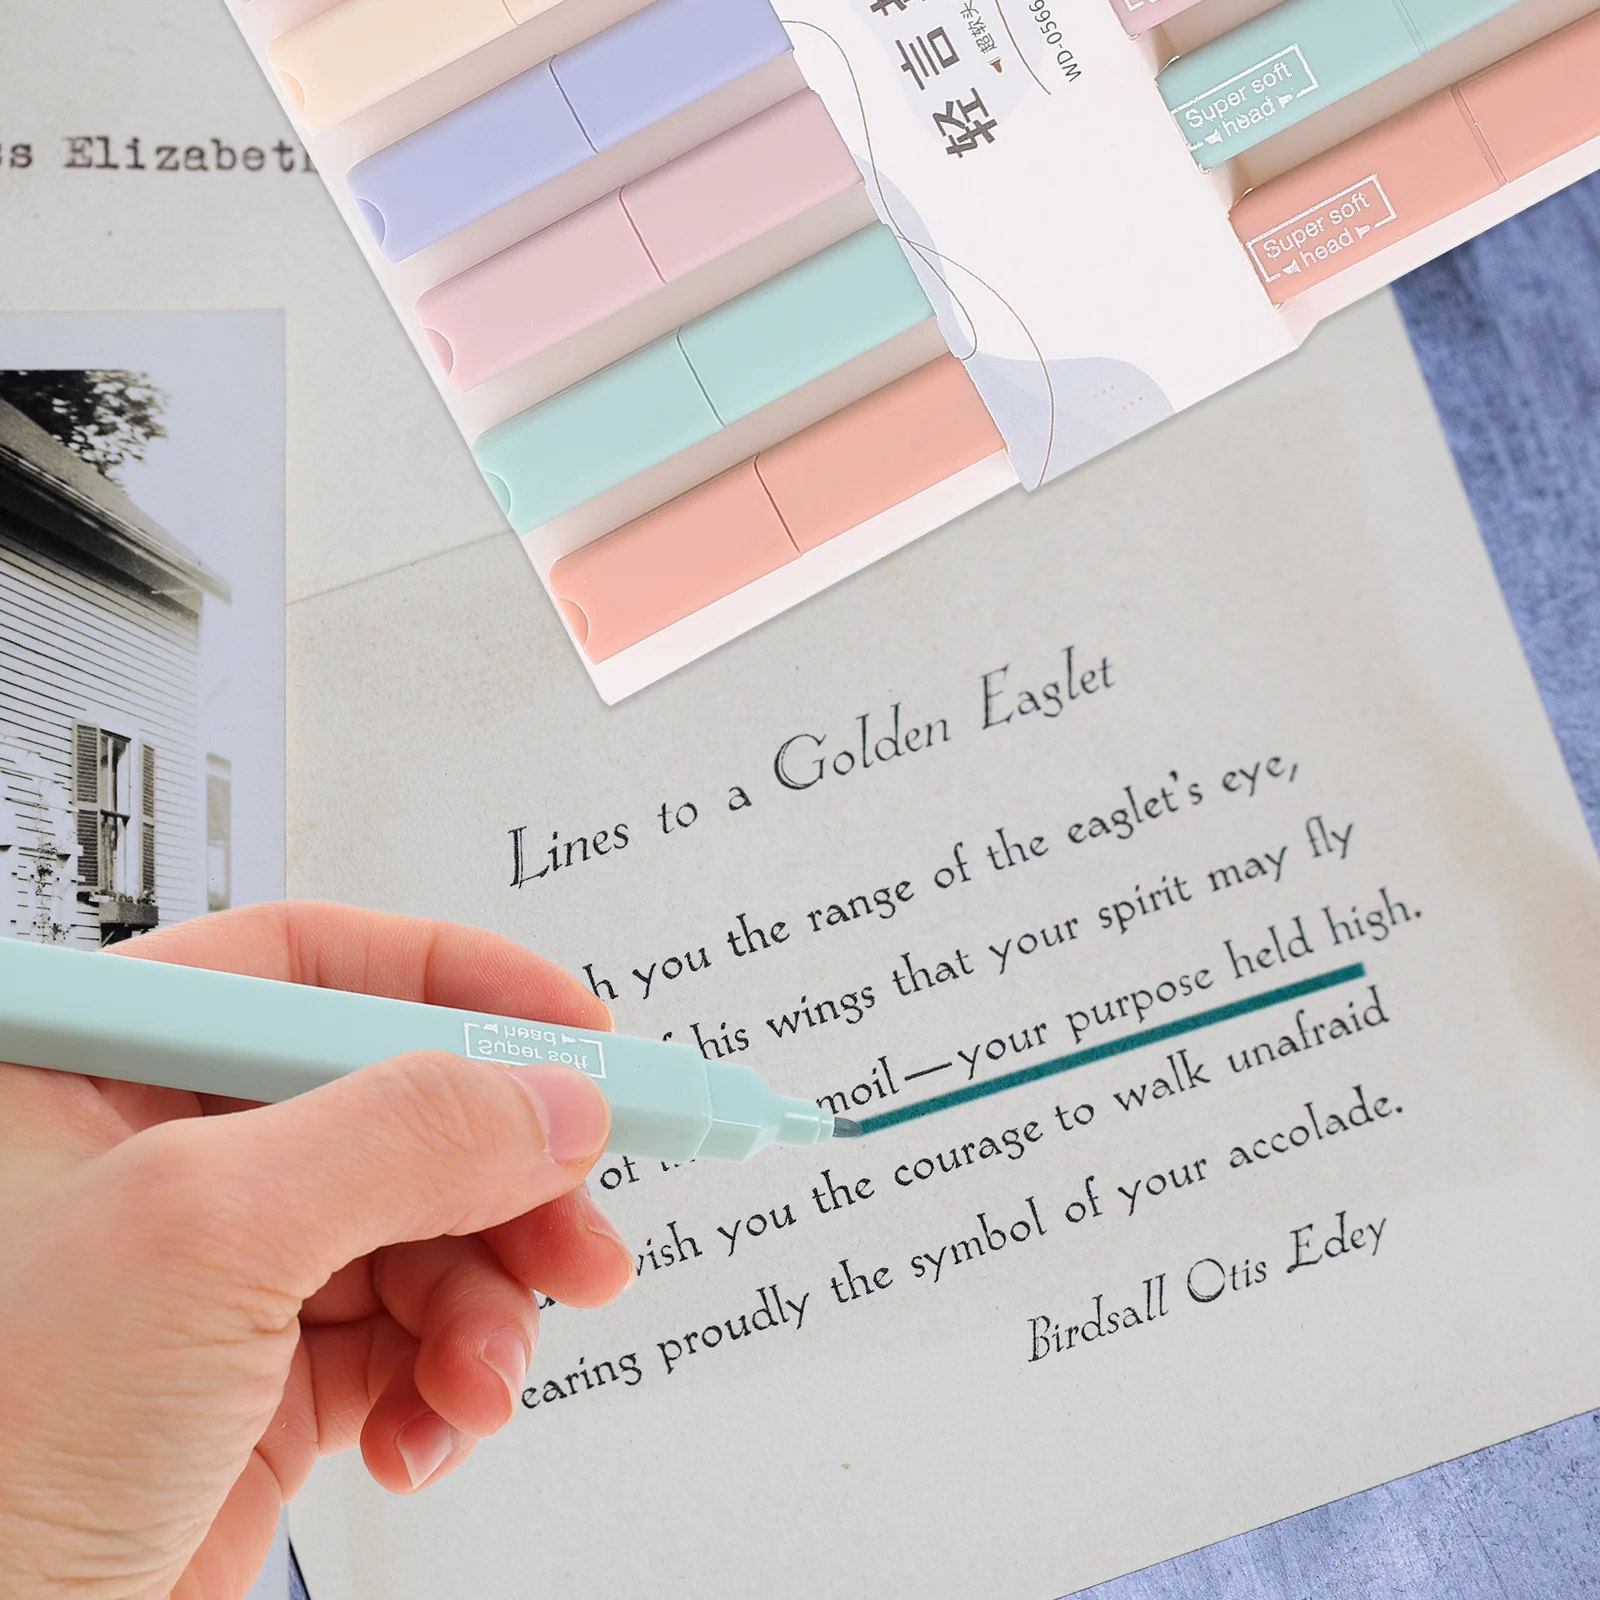 ss Elizabeth
轻言
超软头
WD-0566
Super soft
head
Super soft
head
Lines to a Golden Eaglet
h you the range of the eaglet's eye,
his wings that your spirit may fly
moil—your purpose held high.
of
ish you the courage to walk unafraid
earing proudly the symbol of your accolade.
Birdsall Otis Edey
Super soft
head